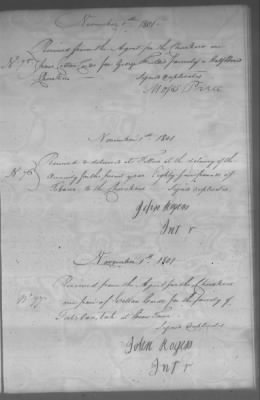 November 1st 1801
No 95
Received from the Agent for the Cherokees one
pair Cotton Cards for George Fields family a half blood
Cherokee
Signed duplicates
Moses Price
November 1st 1801
No 96
Received & delivered at Tellico at the delivery of the
Annuity for the present year Eighty four pounds of
Tobacco to the Cherokees Signed duplicates
John Rogers
Intr
November 1st 1801
No 97
Received from the Agent for the Cherokees
one pair of Cotton Cards for the family of
at
Signed duplicates
John Rogers
Intr